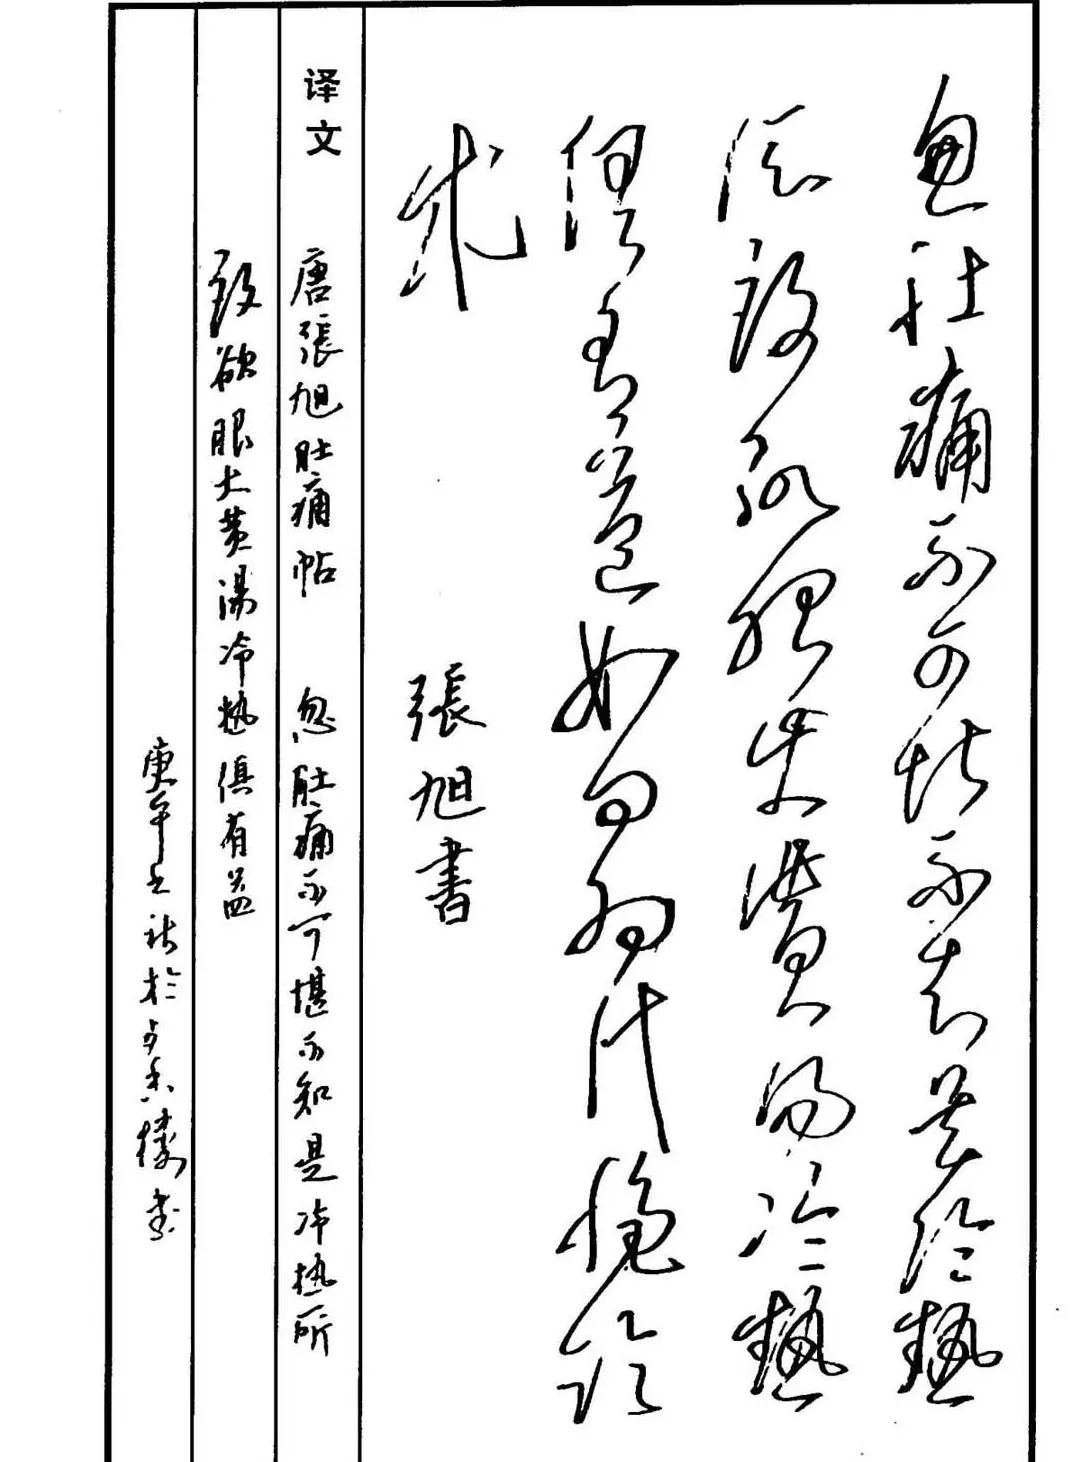 忽肚痛不可堪不知是冷熱
所致欲服大黃湯冷熱
俱有益如何為
張旭書
译文 唐張旭肚痛帖 忽肚痛不可堪不知是冷热所
致欲服大黄湯冷热俱有益
庚午之秋於香樓書